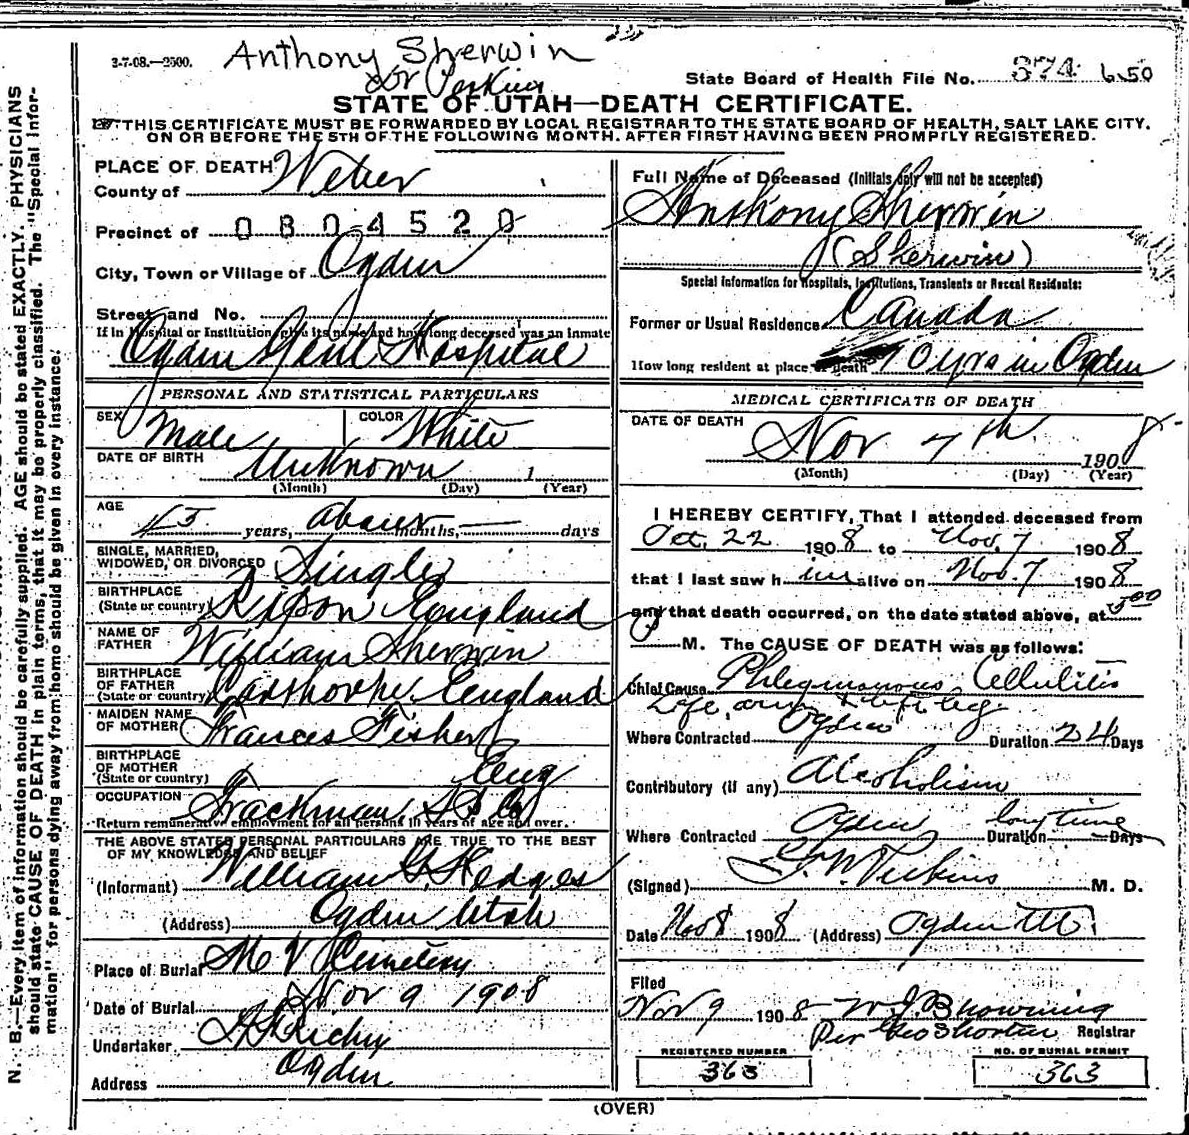 3-7-08.—2500.
Anthony Sherwin
Dr Perkins
State Board of Health File No. 374 650
STATE OF UTAH—DEATH CERTIFICATE.
THIS CERTIFICATE MUST BE FORWARDED BY LOCAL REGISTRAR TO THE STATE BOARD OF HEALTH, SALT LAKE CITY,
ON OR BEFORE THE 5TH OF THE FOLLOWING MONTH, AFTER FIRST HAVING BEEN PROMPTLY REGISTERED.
N. B.—Every item of information should be carefully supplied. AGE should be stated EXACTLY. PHYSICIANS
should state CAUSE OF DEATH in plain terms, that it may be properly classified. The "Special Infor-
mation" for persons dying away from home should be given in every instance.
PLACE OF DEATH
County of Weber
Precinct of 0804520
City, Town or Village of Ogden
Street and No.
If in Hospital or Institution, give its name and how long deceased was an inmate
Ogden Genl Hospital
PERSONAL AND STATISTICAL PARTICULARS
SEX Male COLOR White
DATE OF BIRTH Unknown 1
(Month) (Day) (Year)
AGE
45 years, about months, — days
SINGLE, MARRIED,
WIDOWED, OR DIVORCED Single
BIRTHPLACE
(State or country) Ripon England
NAME OF
FATHER William Sherwin
BIRTHPLACE
OF FATHER
(State or country) England
MAIDEN NAME
OF MOTHER Frances Fisher
BIRTHPLACE
OF MOTHER
(State or country) Eng
OCCUPATION Trackman
Return remunerative employment for all persons 10 years of age and over.
THE ABOVE STATED PERSONAL PARTICULARS ARE TRUE TO THE BEST
OF MY KNOWLEDGE AND BELIEF
(Informant) William G. Hedges
(Address) Ogden Utah
Place of Burial Mt V Cemetery
Date of Burial Nov 9 1908
Undertaker
Address Ogden
Full Name of Deceased (Initials only will not be accepted)
Anthony Sherwin
(Sherwin)
Special information for Hospitals, Institutions, Transients or Recent Residents:
Former or Usual Residence Canada
How long resident at place of death 10 yrs in Ogden
MEDICAL CERTIFICATE OF DEATH
DATE OF DEATH Nov 7th 1908 8-
(Month) (Day) (Year)
I HEREBY CERTIFY, That I attended deceased from
Oct. 22 1908 to Nov. 7 1908
that I last saw him alive on Nov. 7 1908
and that death occurred, on the date stated above, at 5 00
M. The CAUSE OF DEATH was as follows:
Chief Cause Phlegmonous Cellulitis
Left arm & left leg
Where Contracted Ogden Duration 24 Days
Contributory (if any) Alcoholism
Where Contracted Ogden Duration long time Days
(Signed) Perkins M. D.
Date Nov 8 1908 (Address) Ogden Ut.
Filed
Nov 9 1908 W J Browning
Per Geo Shorten Registrar
REGISTERED NUMBER
363
NO. OF BURIAL PERMIT
363
(OVER)